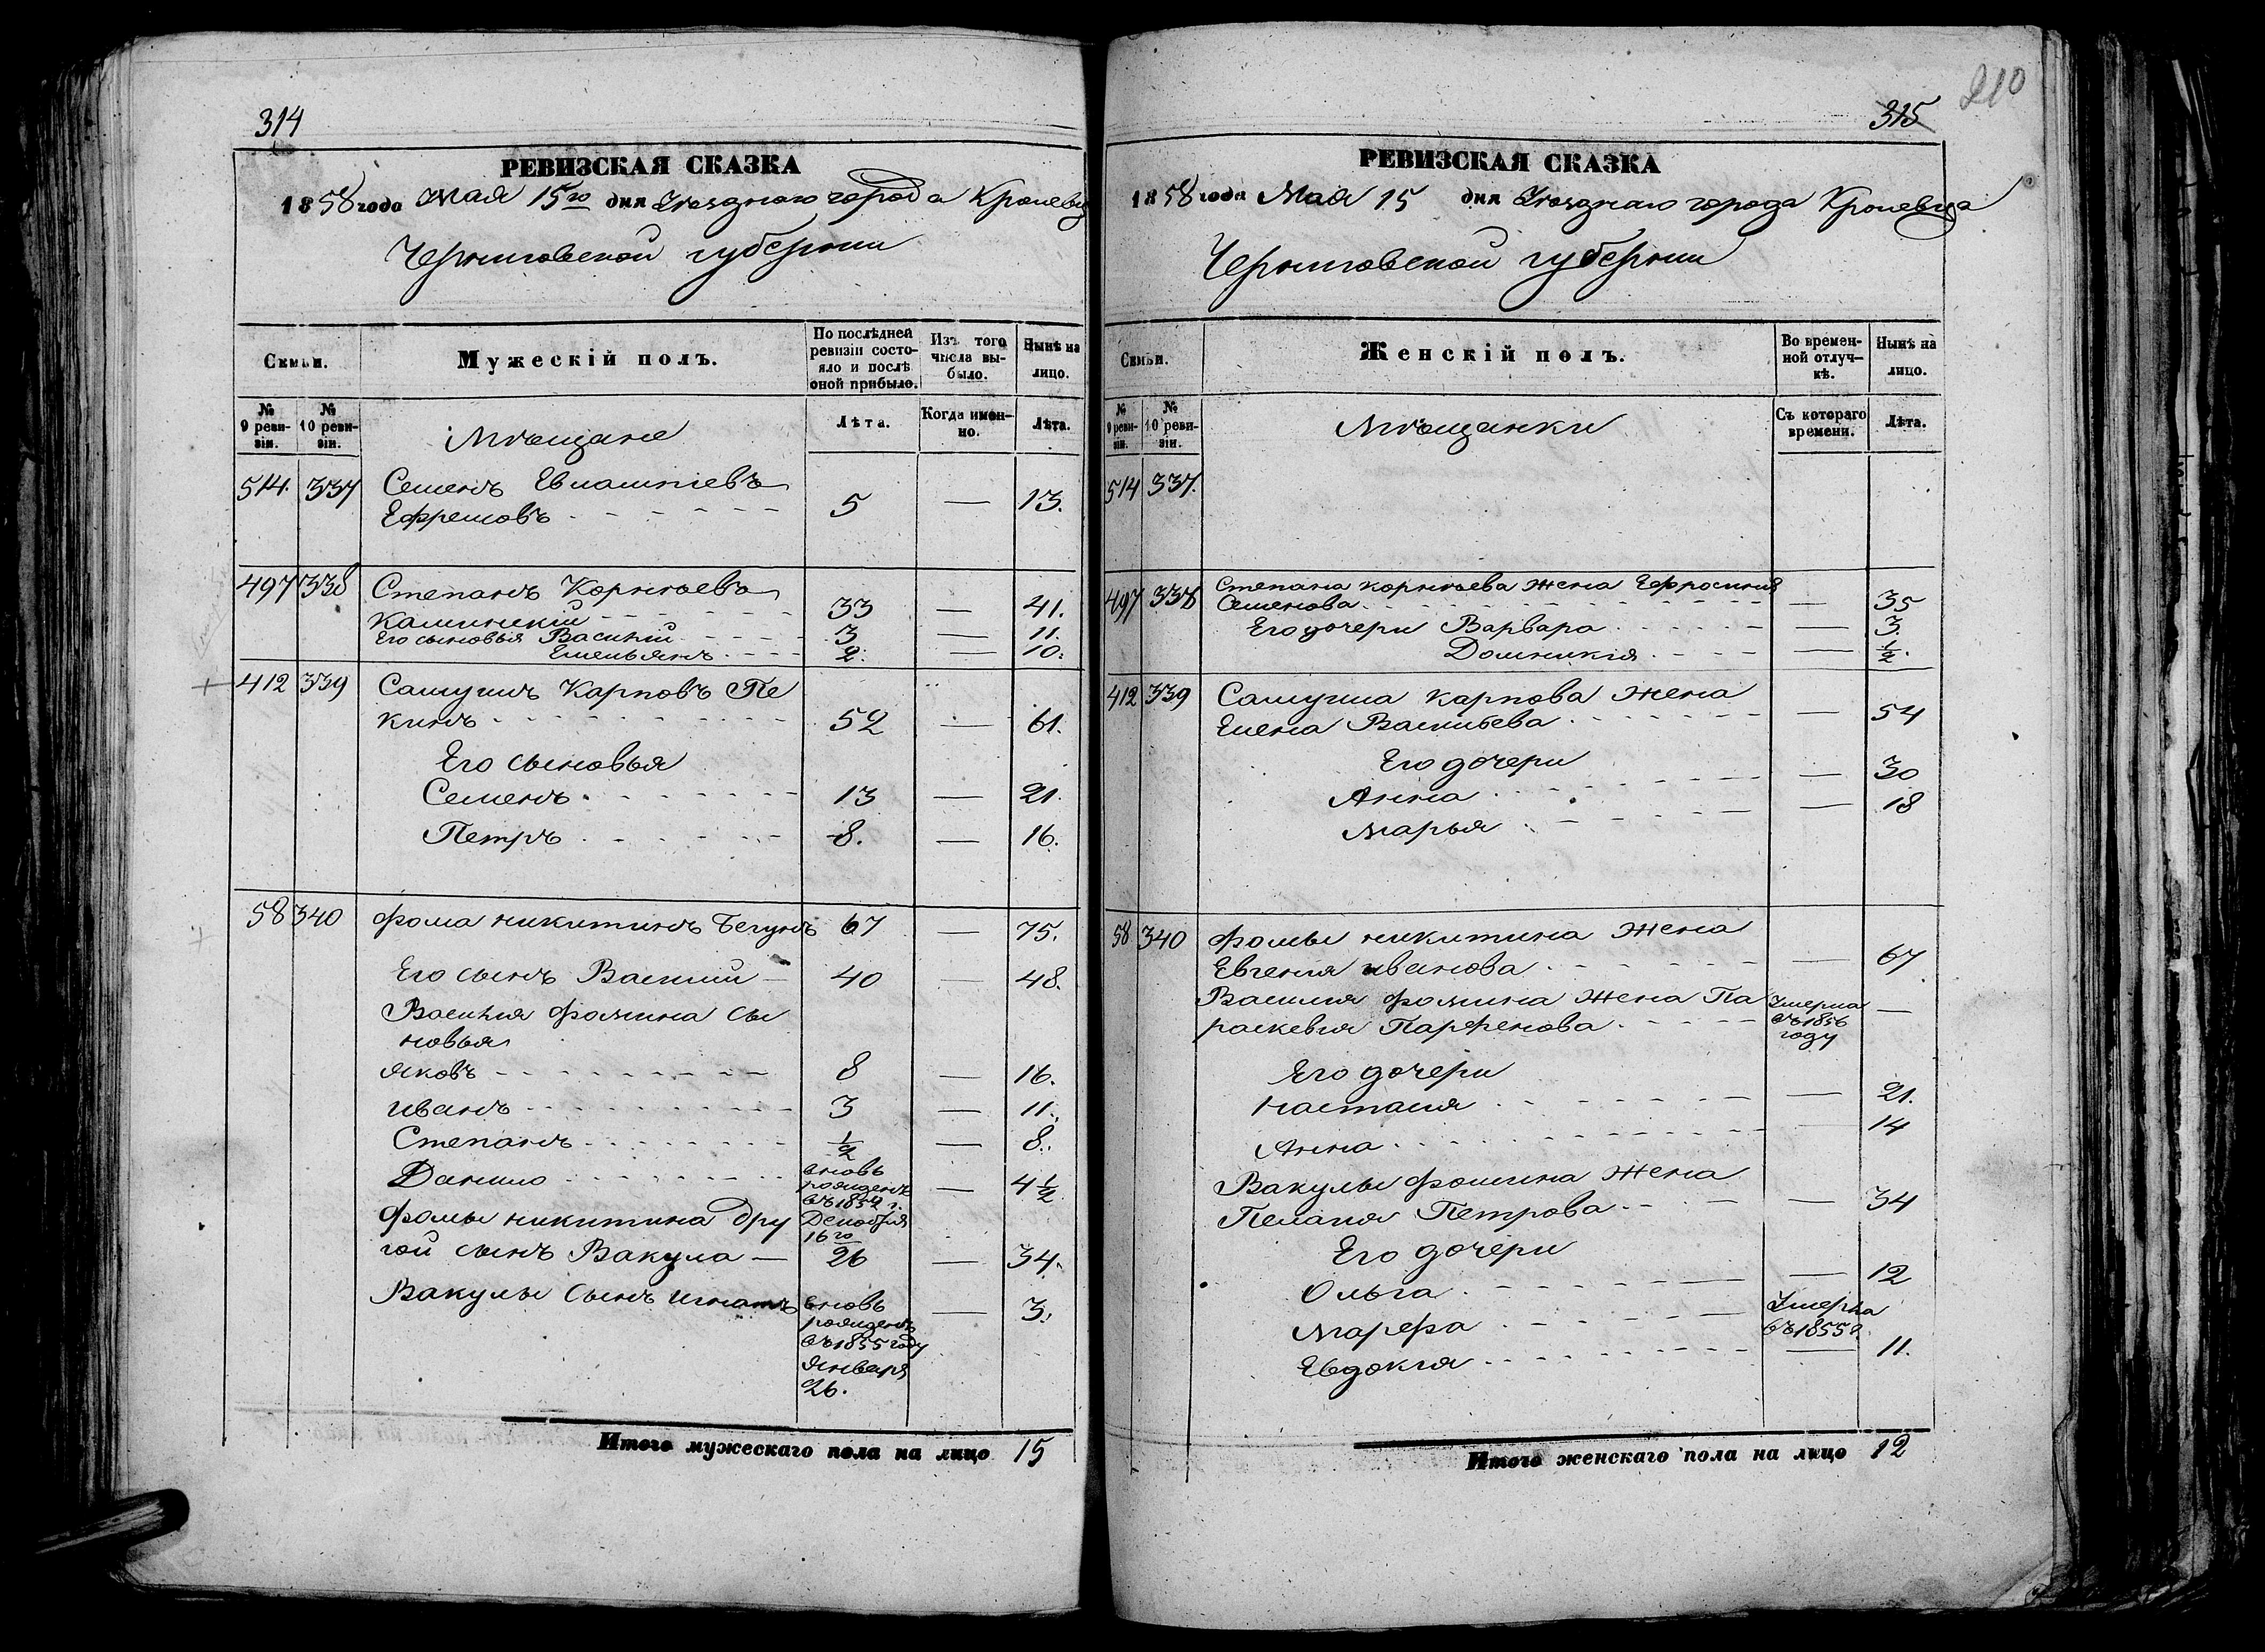 314
РЕВИЗСКАЯ СКАЗКА
1858 года Мая 15го дня Уезднаго города Кролевца
Черниговской губернии
Семьи.
Мужескій полъ.
По послѣдней ревизіи состо-
яло и послѣ оной прибыло.
Изъ того числа вы-
было.
Нынѣ на лицо.
№ 9 реви-
зіи.
№ 10 реви-
зіи.
Мѣщане
Лѣта.
Когда имен-
но.
Лѣта.
514. 337 Семенъ Евлампіевъ
Ефремовъ 5 — 13.
497 338 Степанъ Корнѣевъ
Калинскій 33 — 41.
Его сыновья Василій 3 — 11.
Емельянъ 2. — 10.
412 339 Самуилъ Карповъ Пе
кинъ 52 — 61.
Его сыновья
Семенъ 13 — 21.
Петръ 8. — 16.
58 340 Фома Никитинъ Бегунъ 67 — 75.
Его сынъ Василій — 40 — 48.
Василія Фомина сы
новья
Яковъ 8 — 16.
Иванъ 3 — 11.
Степанъ 1/2 — 8.
Данило вновь
рожденъ — 4 1/2
въ 1852 г.
Фомы Никитина дру Декабря
16го
гой сынъ Вакула — 26 — 34.
Вакулы сынъ Игнатъ вновь — 3.
рожденъ
въ 1855 году
Января
26.
Итого мужескаго пола на лицо 15
210
315
РЕВИЗСКАЯ СКАЗКА
1858 года Мая 15 дня Уезднаго города Кролевца
Черниговской губернии
Семьи.
Женскій полъ.
Во времен-
ной отлуч-
кѣ.
Нынѣ на лицо.
№ 9 реви-
зіи.
№ 10 реви-
зіи.
Мѣщанки
Съ котораго времени.
Лѣта.
514 337.
497 338 Степана Корнѣева жена Ефросинія
Семенова — 35
Его дочери Варвара — 3.
Домникія — 1/2.
412 339 Самуила Карпова жена
Елена Васильева — 54
Его дочери
Анна — 30
Марья — 18
58 340 Фомы Никитина жена
Евгенія Иванова — 67
Василія Фомина жена Па Умерла
раскевія Парфенова въ 1856 —
году
Его дочери
Настасія — 21.
Анна — 14
Вакулы Фомина жена
Пелагія Петрова — 34
Его дочери
Ольга — 12
Марфа Умерла
въ 1855 г.
Евдокія — 11.
Итого женскаго пола на лицо 12